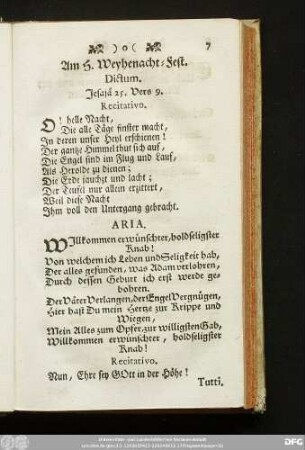 )o( 7
Am H. Weyhenacht-Fest.
Dictum.
Jesajä 25. Vers 9.
Recitativo.
O! helle Nacht,
Die alle Täge finster macht,
In deren unser Heyl erschienen!
Der gantze Himmel thut sich auf,
Die Engel sind im Flug und Lauf,
Als Herolde zu dienen;
Die Erde jauchzt und lacht;
Der Teufel nur allein erzittert,
Weil diese Nacht
Ihm voll den Untergang gebracht.
ARIA.
WIllkommen erwünschter, holdseligster
Knab!
Von welchem ich Leben und Seligkeit hab,
Der alles gefunden, was Adam verlohren,
Durch dessen Geburt ich erst werde ge-
bohren.
Der Väter Verlangen, der Engel Vergnügen,
Hier hast Du mein Hertze zur Krippe und
Wiegen,
Mein Alles zum Opfer, zur willigsten Gab,
Willkommen erwünschter, holdseligster
Knab!
Recitativo.
Nun, Ehre sey GOtt in der Höhe!
Tutti.
DFG